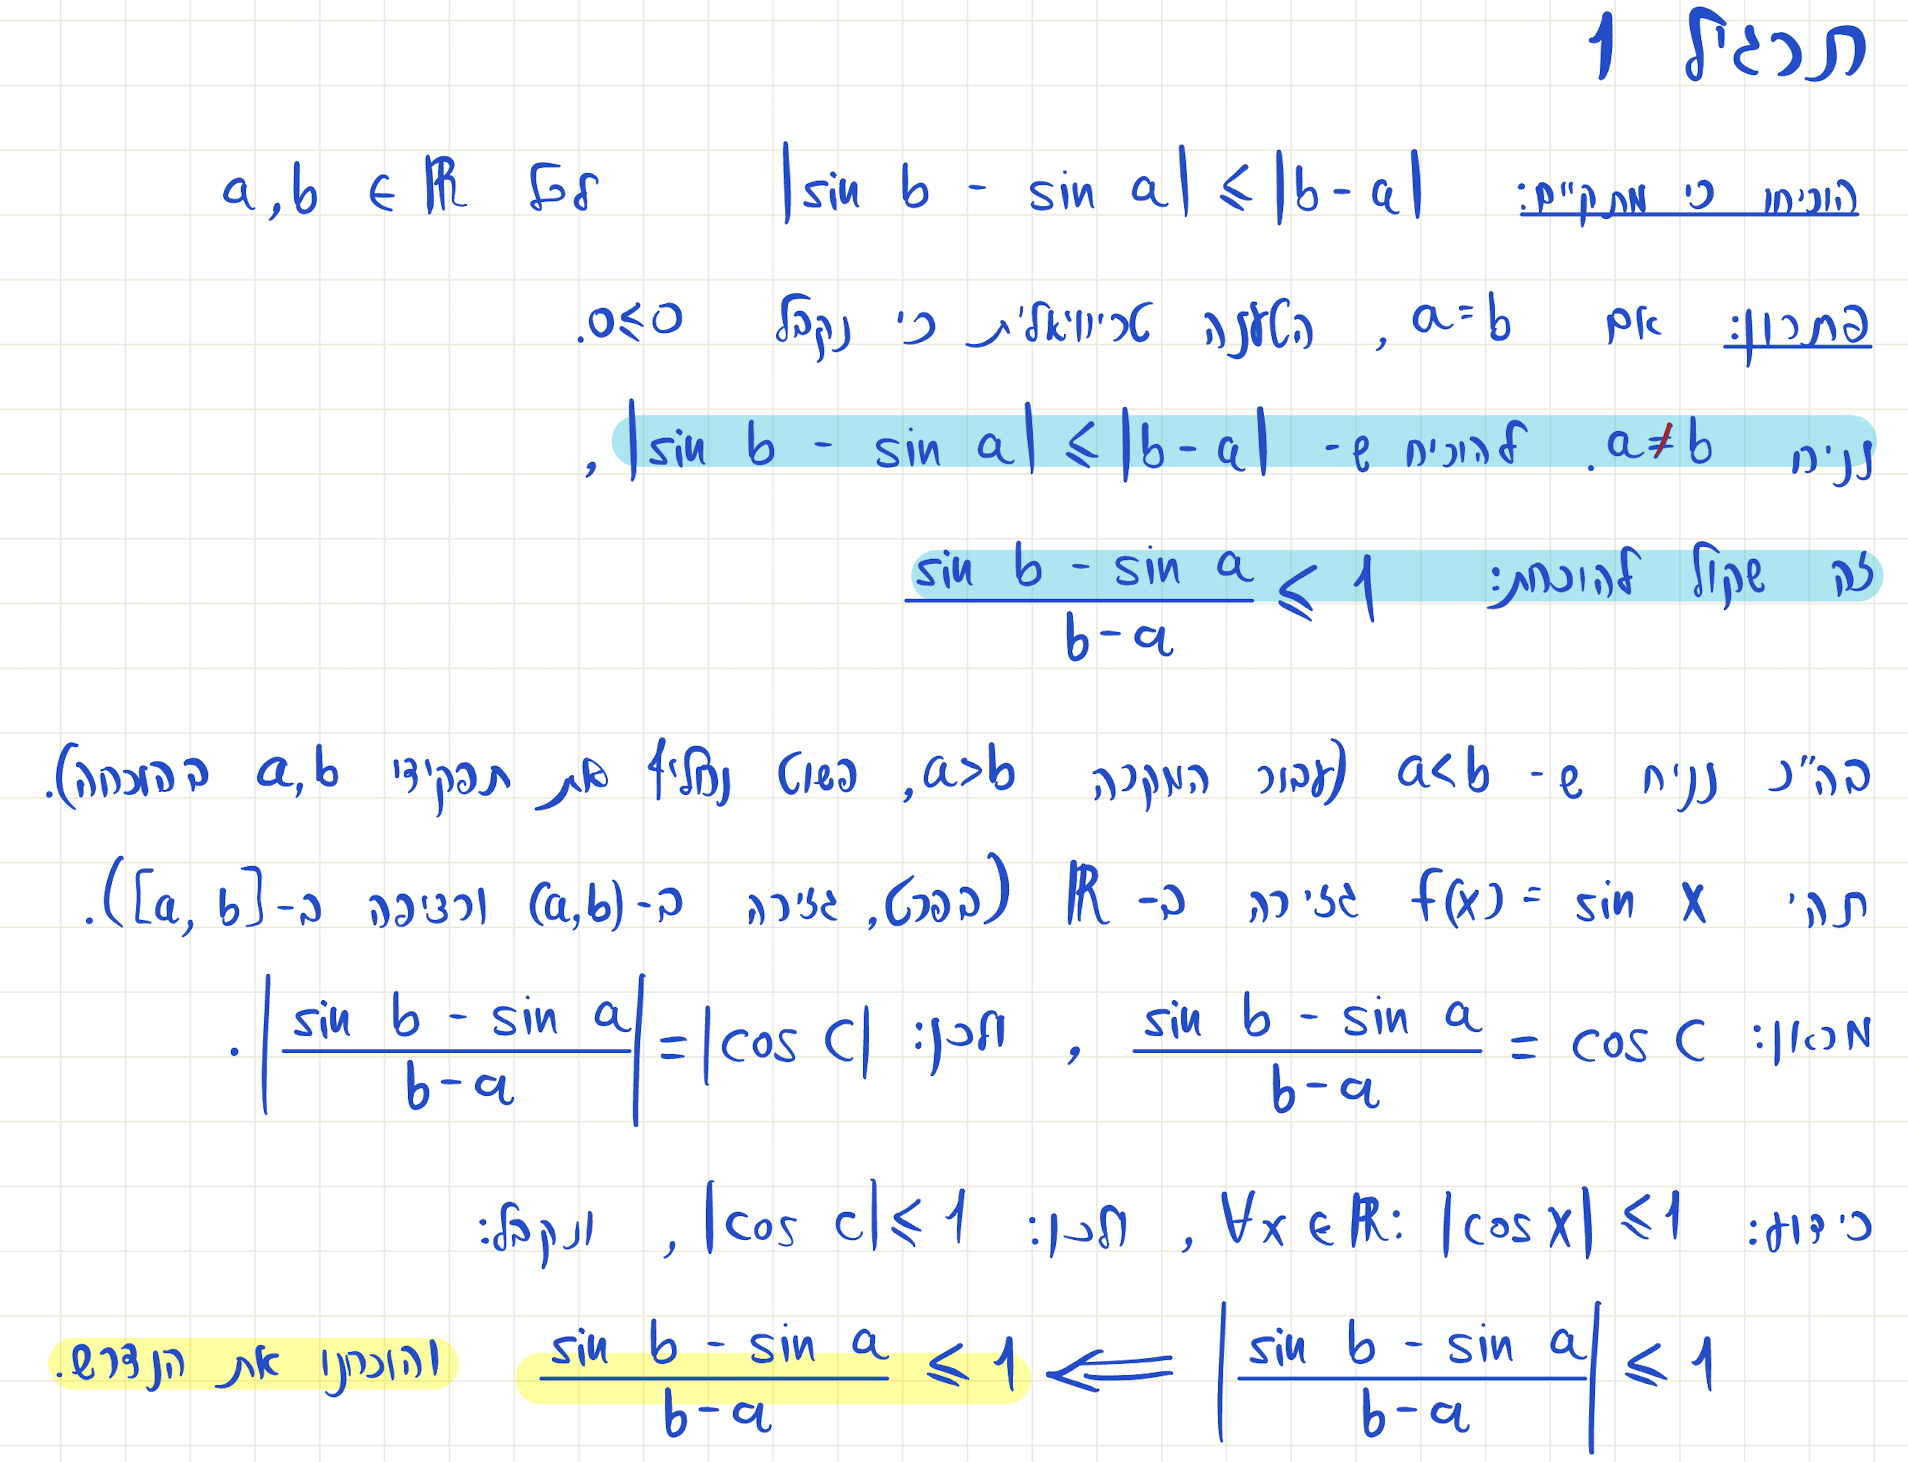 תרגיל 1
הוכיחו כי מתקיים: |sin b - sin a| ≤ |b - a| לכל a, b ∈ ℝ
פתרון: אם a = b, הטענה טריוויאלית כי נקבל 0≤0.
נניח a ≠ b. להוכיח ש- |sin b - sin a| ≤ |b - a|,
זה שקול להוכחת: (sin b - sin a)/(b - a) ≤ 1
בה"כ נניח ש- a<b (עבור המקרה a>b, פשוט נחליף את תפקידי a,b בהוכחה).
תהי f(x) = sin x גזירה ב- ℝ (בפרט, גזירה ב-(a,b) ורציפה ב-[a, b]).
מכאן: (sin b - sin a)/(b - a) = cos c, ולכן: |(sin b - sin a)/(b - a)| = |cos c|.
כידוע: ∀x ∈ ℝ: |cos x| ≤ 1, ולכן: |cos c| ≤ 1, ונקבל:
|(sin b - sin a)/(b - a)| ≤ 1 ⟸ (sin b - sin a)/(b - a) ≤ 1 והוכחנו את הנדרש.